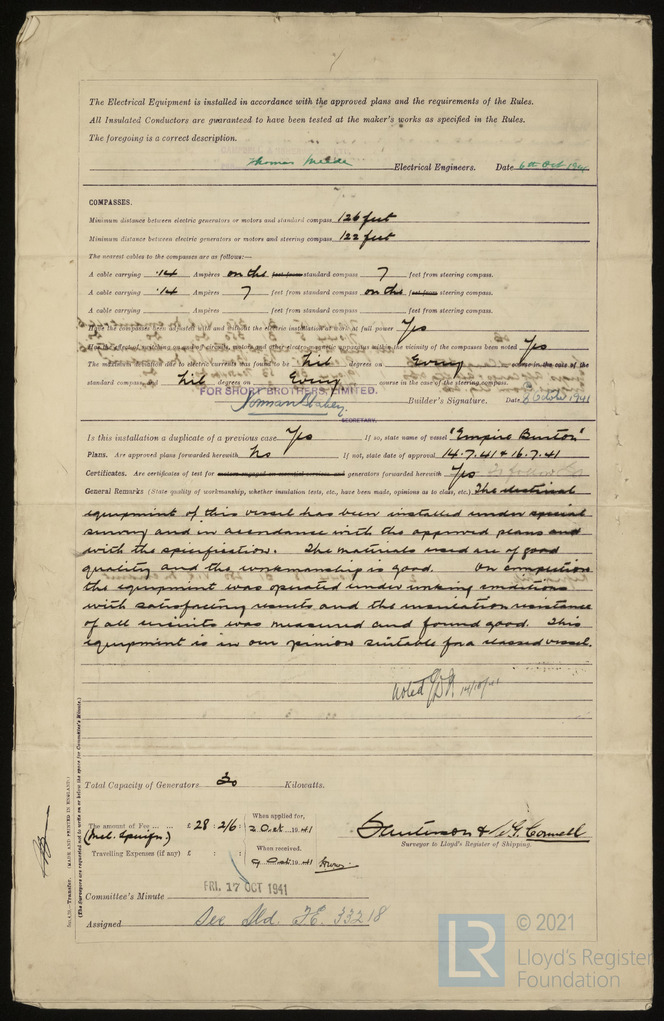 The Electrical Equipment is installed in accordance with the approved plans and the requirements of the Rules.
All Insulated Conductors are guaranteed to have been tested at the maker's works as specified in the Rules.
The foregoing is a correct description.
Thomas Electrical Engineers. Date 6th Oct 1941
COMPASSES.
Minimum distance between electric generators or motors and standard compass 126 feet
Minimum distance between electric generators or motors and steering compass 122 feet
The nearest cables to the compasses are as follows:—
A cable carrying .14 Ampères on the feet from standard compass 7 feet from steering compass.
A cable carrying .14 Ampères 7 feet from standard compass on the feet from steering compass.
A cable carrying Ampères feet from standard compass feet from steering compass.
Have the compasses been adjusted with and without the electric installation at work at full power Yes
Has the effect of switching on and off circuits, motors and other electro-magnetic apparatus within the vicinity of the compasses been noted Yes
The maximum deviation due to electric currents was found to be Nil degrees on Every course in the case of the
standard compass and Nil degrees on Every course in the case of the steering compass.
FOR SHORT BROTHERS, LIMITED.
Builder's Signature. Date 8 October 1941
SECRETARY.
Is this installation a duplicate of a previous case Yes If so, state name of vessel "Empire Burton"
Plans. Are approved plans forwarded herewith No If not, state date of approval 14.7.41 & 16.7.41
Certificates. Are certificates of test for motors engaged on essential services and generators forwarded herewith Yes To follow
General Remarks (State quality of workmanship, whether insulation tests, etc., have been made, opinions as to class, etc.) The electrical
equipment of this vessel has been installed under special
survey and in accordance with the approved plans and
with the specification. The materials used are of good
quality and the workmanship is good. On completion
the equipment was operated under working conditions
with satisfactory results and the insulation resistance
of all circuits was measured and found good. This
equipment is in our opinion suitable for a classed vessel.
Noted 14/10/41
Total Capacity of Generators 30 Kilowatts.
The amount of Fee ... ... £ 28 : 2/6 : When applied for, 2 Oct 1941
(Incl. Specifn.)
When received,
Travelling Expenses (if any) £ : : 9 Oct 1941
Surveyor to Lloyd's Register of Shipping.
Committee's Minute FRI. 17 OCT 1941
Assigned See Sld. F.E. 33218
Transfer. (MADE AND PRINTED IN ENGLAND.)
(The Surveyors are requested not to write on or below the space for Committee's Minute.)
LR
© 2021
Lloyd's Register
Foundation